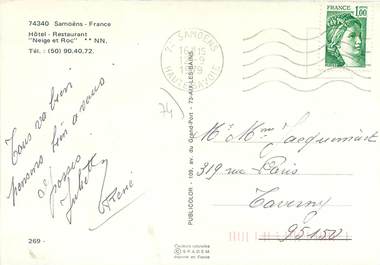 74340 Samoëns - France
Hôtel - Restaurant
"Neige et Roc" ** NN.
Tél. : (50) 90.40.72.
Tous va bien
pensons bien a vous
Juliette
René
269 -
PUBLICOLOR - 109, av. du Grand-Port - 73-AIX-LES-BAINS
Couleurs naturelles
© SPADEM
Imprimé en France
74 SAMOENS
HAUTE-SAVOIE
1.00
74
Mr Mme Jacquemart
319 rue Paris
Taverny
95150